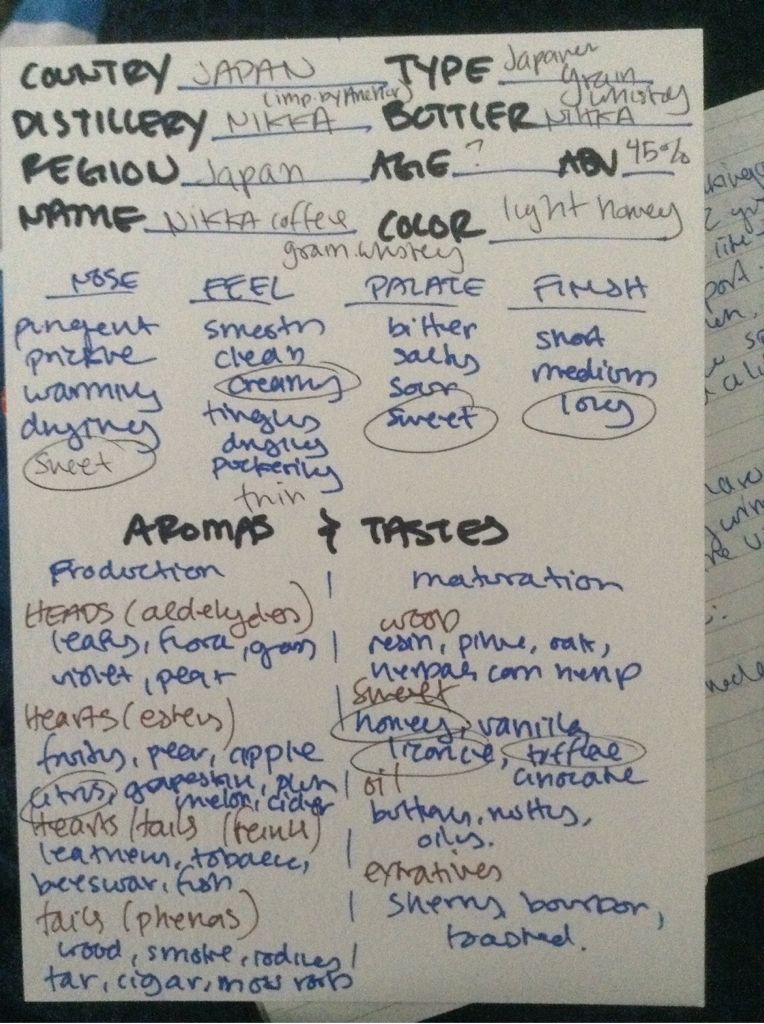 COUNTRY JAPAN TYPE Japanese grain whiskey
(imp. by Anchor)
DISTILLERY NIKKA BOTTLER NIKKA
REGION Japan AGE ? ABV 45%
NAME NIKKA coffee grain whiskey COLOR light honey
NOSE FEEL PALATE FINISH
pungent smooth bitter short
prickle clean salty medium
warming creamy sour long
drying tingling sweet
sweet drying
puckering
thin
AROMAS & TASTES
Production | maturation
HEADS (aldehydes) wood
leafy, floral, grass | resin, pine, oak,
violet, pear herbal, corn hemp
sweet
Hearts (esters) honey, vanilla,
fruity, pear, apple licorice, toffee
citrus, grapeskin, plum chocolate
melon, cider oil
Hearts/tails (feints) buttery, nutty,
leathery, tobacco, oily.
beeswax, fish extratives
tails (phenols) sherry, bourbon,
wood, smoke, iodine, toasted.
tar, cigar, moss